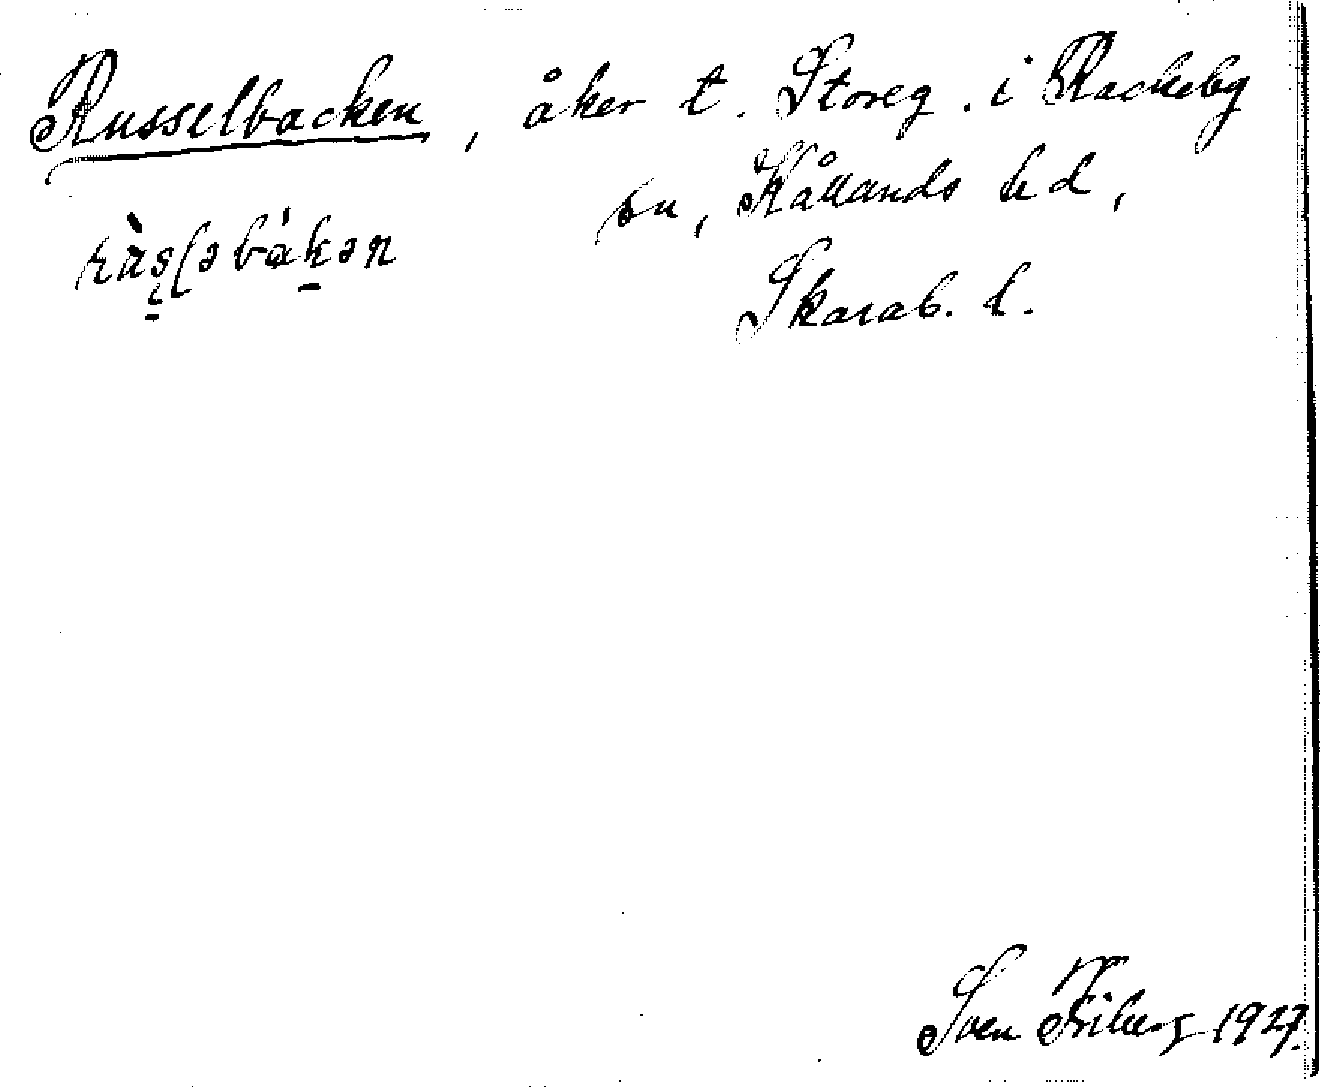 Russelbacken, åker t. Storeg. i Rackeby
sn, Kållands hd,
Skarab. l.
Sven Friberg 1927.